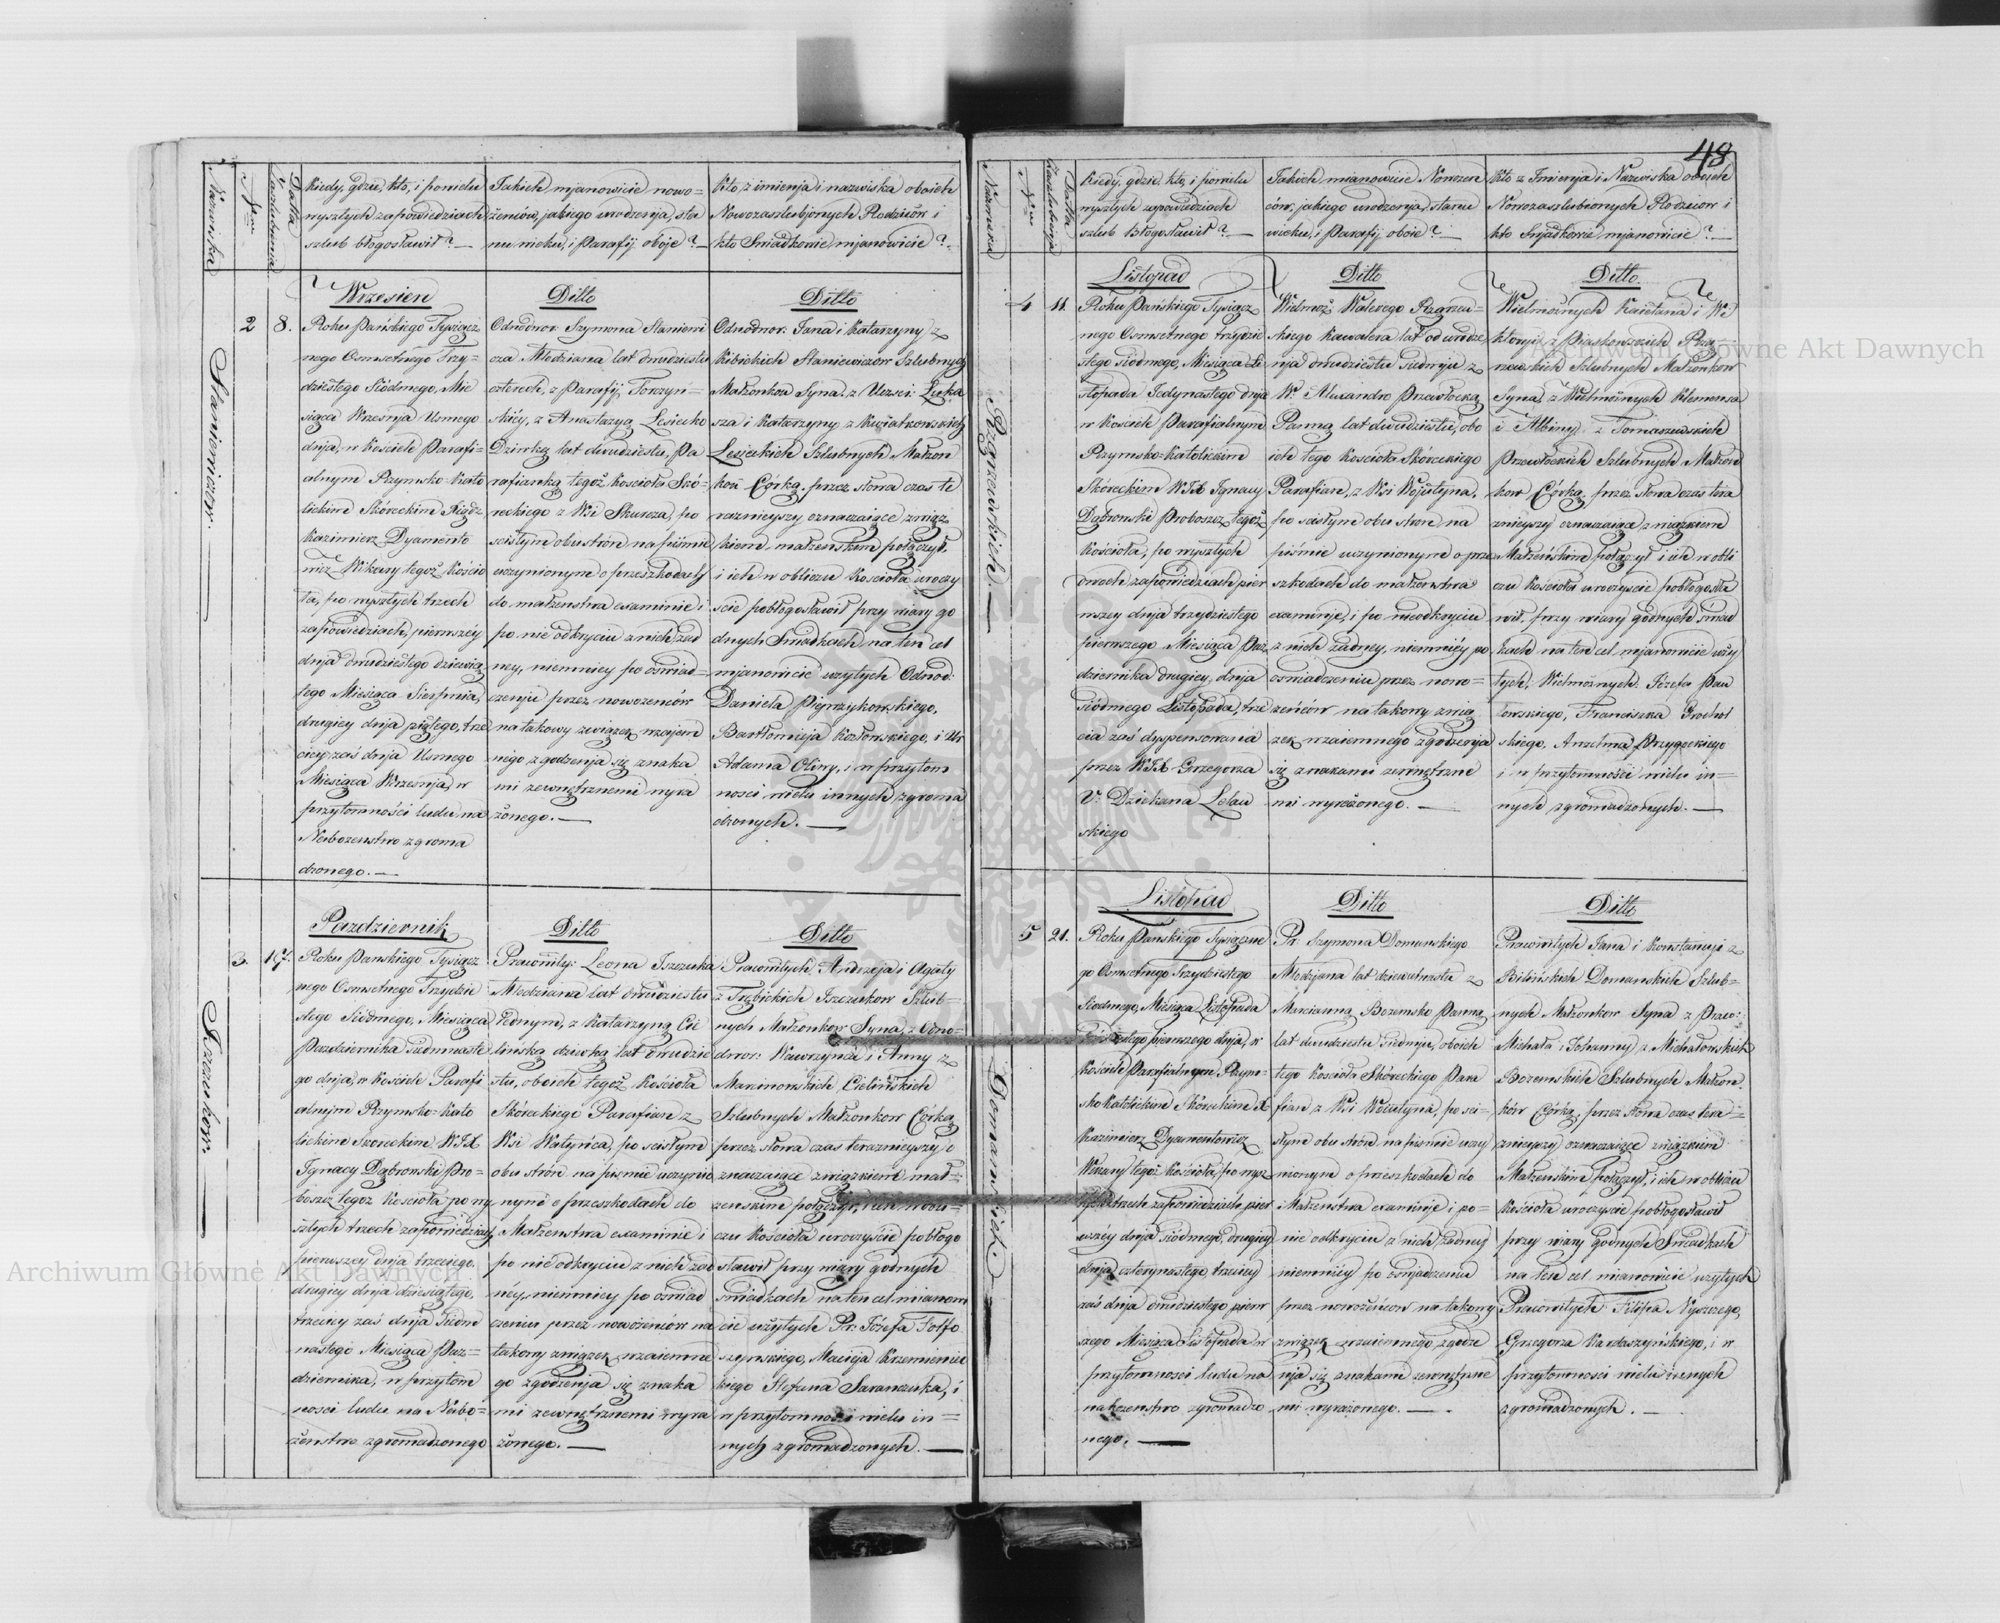 48
Nazwiska
Nrm
Datta Zaszlubienia
Kiedy, gdzie, kto, i po wielu
wyszłych zapowiedziach
szlub błogosławił? —
Jakich mjanowicie nowo-
żeńców, jakiego urodzenja, sta
nu wieku, i Parafij oboje? —
Kto, z imienja i nazwiska oboich
Nowozaszlubjonych Rodziców i
kto Swiadkowie mjanowicie? —
Staniewiczow
2
8.
Wrzesien
Roku Pańskiego Tysiącz
nego Osmsetnego Trzy-
dziestego Siódmego, Mie
siąca Wrzesnja Osmego
dnja, w Kosciele Parafi-
alnym Rzymsko-Kato
lickim Skóreckim
Kazimierz Dyamento
wicz Wikary tegoż Kościo
ła, po wyszłych trzech
zapowiedziach, pierwszéy
dnja dwudziestego dziewią
tego Miesiąca Sierpnia,
drugiey dnja piątego, trze
ciey zaś dnja Osmego
Miesiąca Wrzesnja, w
przytomności ludu na
Nabożenstwo zgroma
dzonego. —
Ditto
Odnodwor. Szymona Staniewi
cza Młodziana lat dwudziestu
czterech, z Parafij
z Anastazyą Lesiecko
Dziewką lat dwudziestu, Pa
rafianką tegoż Kościoła Skó-
reckiego z Wsi Skurcza, po
scisłym obustrón na piśmie
uczynionym o przeszkodach
do małżenstwa examinie i
po nie odkryciu z nich żad
ney, niemniey po oswiad-
czenju przez nowożeńców
na takowy związek wzajem
nego zgodzenja się znaka
mi zewnętrznemi wyra
żonego. —
Ditto
Odnodwor. Jana i Katarzyny z
Kibickich Staniewiczow Szlubnych
Małżonkow Syna, z Uczci: Łuka
sza i Katarzyny z Kwiatkowskich
Lesieckich Szlubnych Małżon
kow Córką, przez słowa czas te
razniejszy oznaczające związ
kiem małżenskim połączył,
i ich w obliczu Kościoła uroczy
scie pobłogosławił przy wiary go
dnych Swiadkach, na ten cel
mjanowicie użytych Odnod.
Daniela
Bartłomieja Kozłowskiego, i Ur
Adama Oliny, i w przytom
nosci wielu innych zgroma
dzonych. —
Iszczukow
3.
17.
Pazdziernik
Roku Panskiego Tysiącz
nego Osmsetnego Trzydzie
stego Siódmego, Miesiąca
Pazdziernika Siedmnaste
go dnja, w Kościele Parafi
alnym Rzymsko-Kato
lickim Skoreckim WJX
Ignacy Dąbrowski Pro-
boszcz tegoż Kościoła po wy
szłych trzech zapowiedziach
pierwszey dnja trzeciego,
drugiey dnja dziesiątego,
trzeciey zaś dnja Siedm
nastego Miesiąca Paz-
dziernika, w przytom
nosci ludu na Nabo-
żenstwo zgromadzonego
Ditto
Pracowity: Leona Iszczuka
Młodziana lat dwudziestu
Jednym, z Katarzyną Cie
lińską dziewką lat dwudzie
stu, oboich tegoż Kościoła
Skóreckiego Parafian z
Wsi Wołyńca, po scisłym
obu strón na piśmie uczynio
nym o przeszkodach do
Małżenstwa examinie i
po nie odkryciu z nich żad
néy, niemniey po oswiad
czeniu przez nowożeńców na
takowy związek wzaiemne
go zgodzenja się znaka
mi zewnętrznemi wyra
żonego. —
Ditto
Pracowitych Andrzeja i Agaty
z Trębickich Iszczukow Szlub-
nych Małżonkow Syna, z Odno-
dwor: Wawrzynca i Anny z
Marcinowskich Cielińskich
Szlubnych Małżonkow Córką
przez słowa czas terazniejszy o
znaczające związkiem mał-
żenskim połączył, i ich w obli-
czu Kościoła uroczyście pobłogo
sławił przy wiary godnych
Swiadkach na ten cel mianowi
cie użytych Pr: Józefa
Macieja
Stefana i
w przytomnosci wielu in-
nych zgromadzonych. —
Nazwiska
Nrm
Datta Zaszlubienia
Kiedy, gdzie, kto, i po wielu
wyszłych zapowiedziach
szlub błogosławił? —
Jakich mianowicie Nowożen
ców, jakiego urodzenja, stanu
wieku, i Parafij oboie? —
Kto z Imienja i Nazwiska oboich
Nowozaszlubionych Rodzicow i
kto Swjadkowie mjanowicie? —
4
11.
Listopad
Roku Pańskiego Tysiącz
nego Osmsetnego trzydzie
stego siódmego, Miesiąca Li
stopada Jedynastego dnja
w Kosciele Parafialnym
Rzymsko-Katolickim
Skóreckim WJX Ignacy
Dąbrowski Proboszcz tegoż
Kościoła, po wyszłych
dwóch zapowiedziach pier
wszey dnja trzydziestego
pierwszego Miesiąca Paź
dziernika drugiey dnja
siódmego Listopada, trze
cia zaś dyspensowana
przez WJX Grzegorza
V: Dziekana
skiego
Ditto
Wielmoż Walerego
skiego Kawalera lat od urodze
nja dwudziestu siedmju z
W: Alexandrą Przewłocką
Panną lat dwudziestu, obo
ich tego Kościoła Skóreckiego
Parafian, z Wsi Wojstyna,
po scisłym obu stron na
piśmie uczynionym o prze
szkodach do małżenstwa
examinje, i po nieodkryciu
z nich żadney, niemniéy po
oświadczeniu przez nowo-
żeńców na takowy zwią
zek wzaiemnego zgodzenja
się znakami zewnętrzne
mi wyrażonego. —
Ditto
Wielmożnych Kaietana i Wi
ktoryi z Piaskowskich
Szlubnych Małżonkow
Syna, z Wielmożnych Klemensa
i Albiny z Tomaszewskich
Przewłockich Szlubnych Małżon
kow Córką, przez słowa czas tera
znieyszy oznaczaiące związkiem
Małżeńskim połączył i ich w obli
czu Kościoła uroczyscie pobłogosła
wił, przy wiary godnych świad
kach na ten cel mjanowicie uży
tych, Wielmożnych Józefa Paw
łowskiego, Franciszka Grochol
skiego, Anzelma
i w przytomności wielu in-
nych zgromadzonych. —
Domanskich
5
21.
Listopad
Roku Panskiego Tysiączne
go Osmsetnego Trzydziestego
Siódmego, Miesiąca Listopada
Dwudziestego pierwszego dnja, w
Kościele Parafialnym Rzym-
sko Katolickim Skóreckim X
Kazimierz Dyamentowicz
Wikary tegoż Kościoła, po wysz
łych trzech zapowiedziach, pier
wszéy dnja siódmego, drugiey
dnja czternastego, trzeciey
zaś dnja dwudziestego pierw
szego Miesiąca Listopada w
przytomnosci ludu na
nabożenstwo zgromadzo
nego. —
Ditto
Pr. Szymona Domanskiego
Młodzjana lat dziewietnastu z
Marcianną Bozemsko Panną
lat dwudziestu siedmju, oboich
tego Kościoła Skóreckiego Para
fian z Wsi po sci-
słym obu strón na pismie uczy
nionym o przeszkodach do
Małżeństwa examinje i po-
nie odkryciu z nich żadney
niemniéy po oswjadczeniu
przez nowożeńcow na takowy
związek wzaiemnego zgodze
nja się znakami zewnętrzne
mi wyrażonego. —
Ditto
Pracowitych Jana i Konstancyi z
Bilińskich Domanskich Szlub-
nych Małżonkow Syna z Praco:
Michała i Johanny z Michałowskich
Bozemskich Szlubnych Małżon
ków Córką, przez słowa czas tera-
znieyszy oznaczaiące związkiem
Małżenskim połączył, i ich w obliczu
Kościoła uroczyscie pobłogosławił
przy wiary godnych Swiadkach
na ten cel mianowicie użytych
Pracowitych: Filipa
Grzegorza i w
przytomnosci wielu innych
zgromadzonych. —
Archiwum Główne Akt Dawnych
Archiwum Główne Akt Dawnych